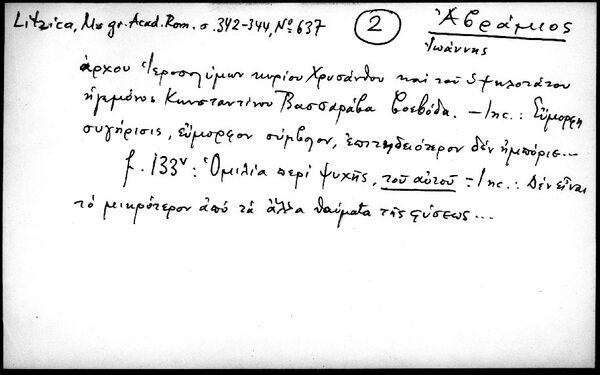 Litzica, Ms gr. Acad. Rom. σ. 342-344, Nº 637
2
Ἀβράμιος
Ἰωάννης
άρχου Ἱεροσολύμων κυρίου Χρυσάνθου καὶ τοῦ ὑψηλοτάτου
ἡγεμόνος Κωνσταντίνου Βασσαράβα βοεβόδα. — Inc.: Εὔμορφη
συγήρισις, εὔμορφον σύμβολον, ἐπιτηδειότερον δὲν ἠμπόρις...
f. 133v: Ὁμιλία περὶ ψυχῆς, τοῦ αὐτοῦ — Inc.: Δὲν εἶναι
τὸ μικρότερον ἀπὸ τὰ ἄλλα θαύματα τῆς φύσεως...